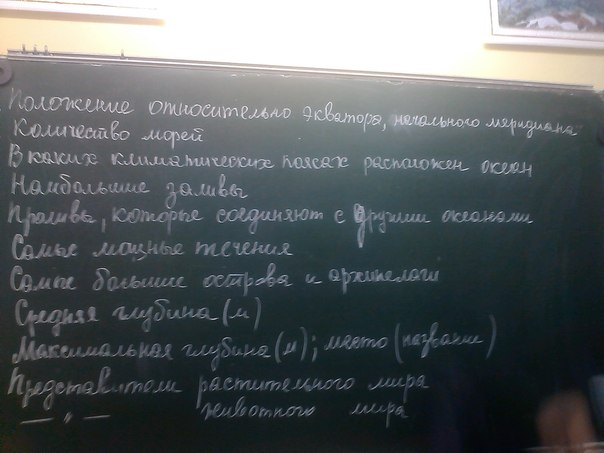 Положение относительно экватора, начального меридиана
Количество морей
В каких климатических поясах расположен океан
Наибольшие заливы
Проливы, которые соединяют с другими океанами
Самые мощные течения
Самые большие острова и архипелаги
Средняя глубина (м)
Максимальная глубина (м); место (название)
Представители растительного мира
— „ — животного мира